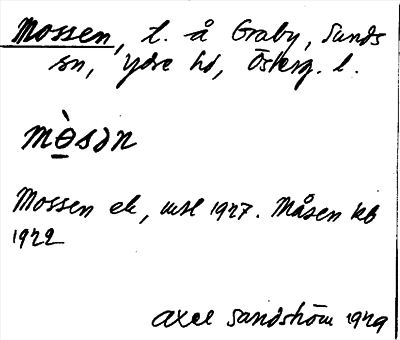 Mossen, t. å Graby, Sunds
sn, Ydre hd, Österg. l.
mө̀sən
Mossen ek, mtl 1927. Måsen kb
1922
Axel Sandström 1929